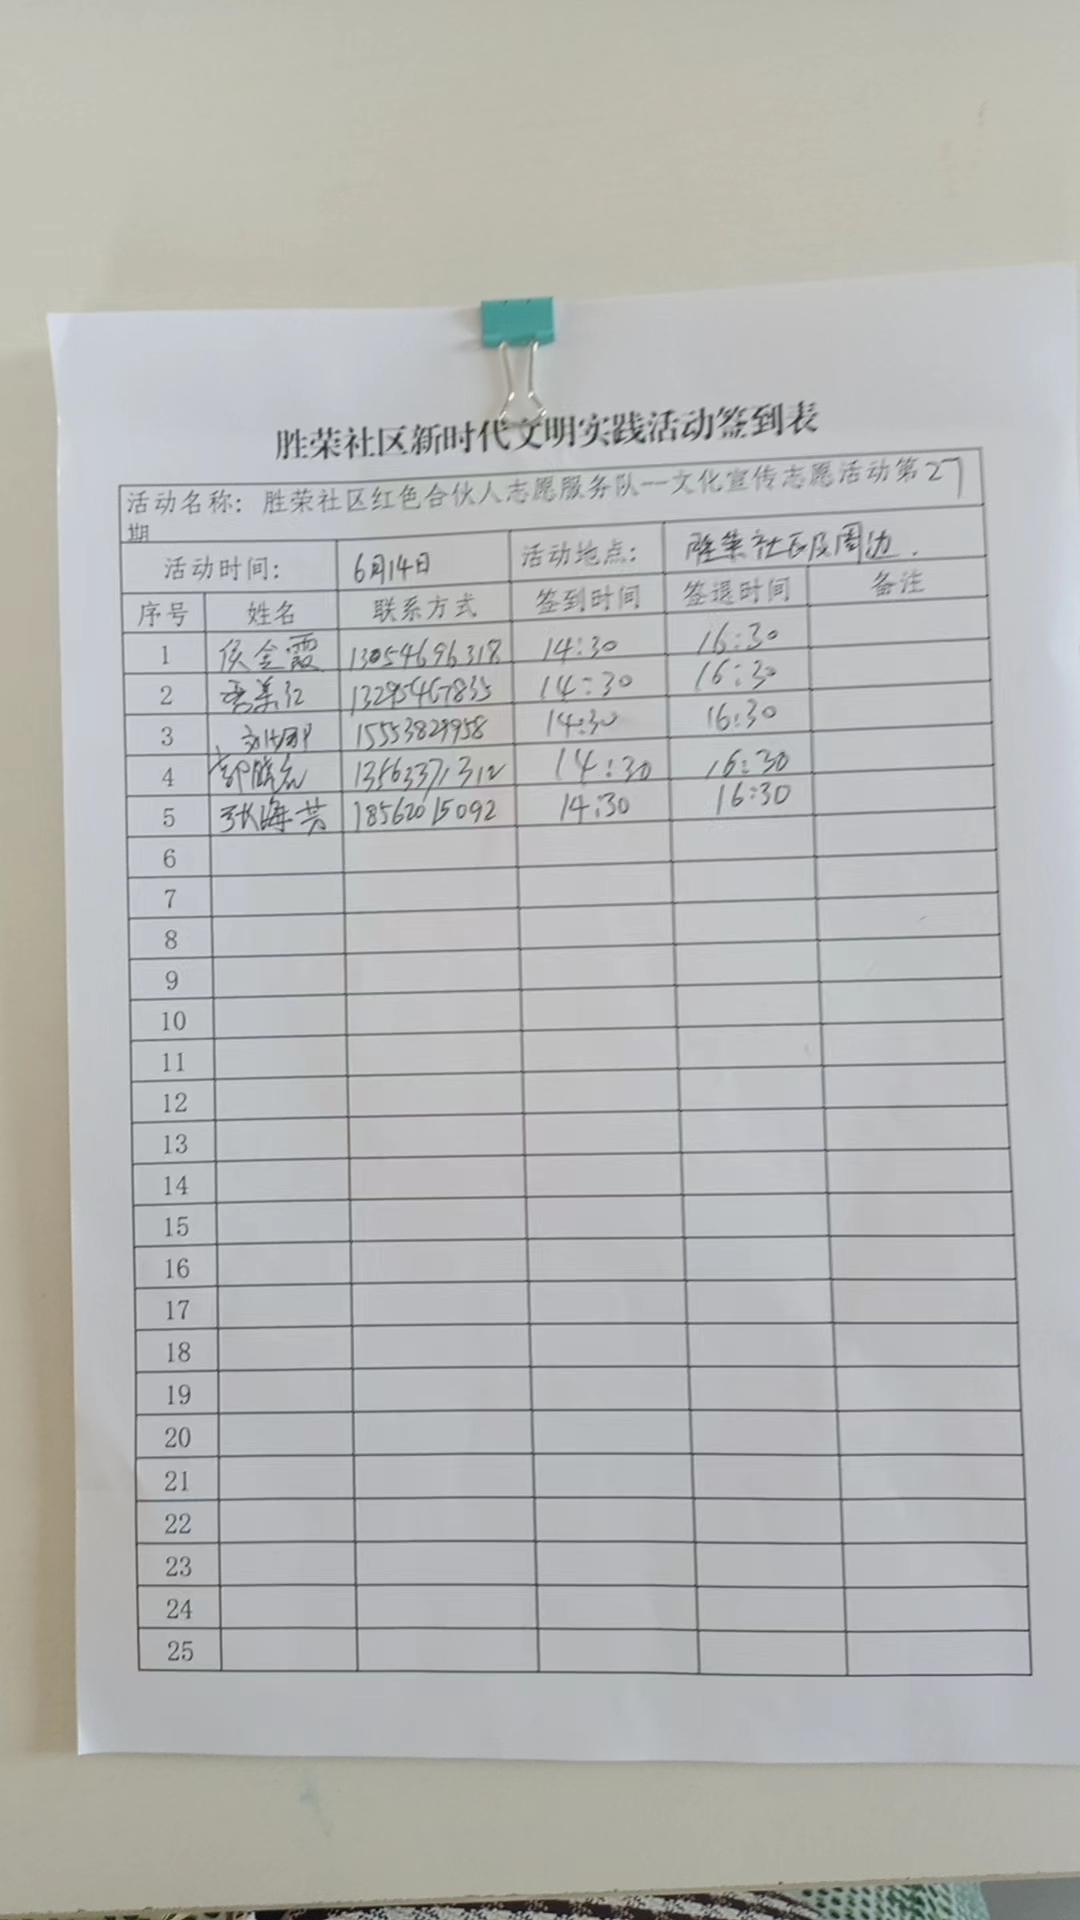 胜荣社区新时代文明实践活动签到表
活动名称: 胜荣社区红色合伙人志愿服务队--文化宣传志愿活动第27
期
活动时间: 6月14日 活动地点: 胜荣社区及周边.
序号 姓名 联系方式 签到时间 签退时间 备注
1 侯金霞 13054696318 14:30 16:30
2 14:30 16:30
3 14:30 16:30
4 14:30 16:30
5 18562015092 14:30 16:30
6
7
8
9
10
11
12
13
14
15
16
17
18
19
20
21
22
23
24
25